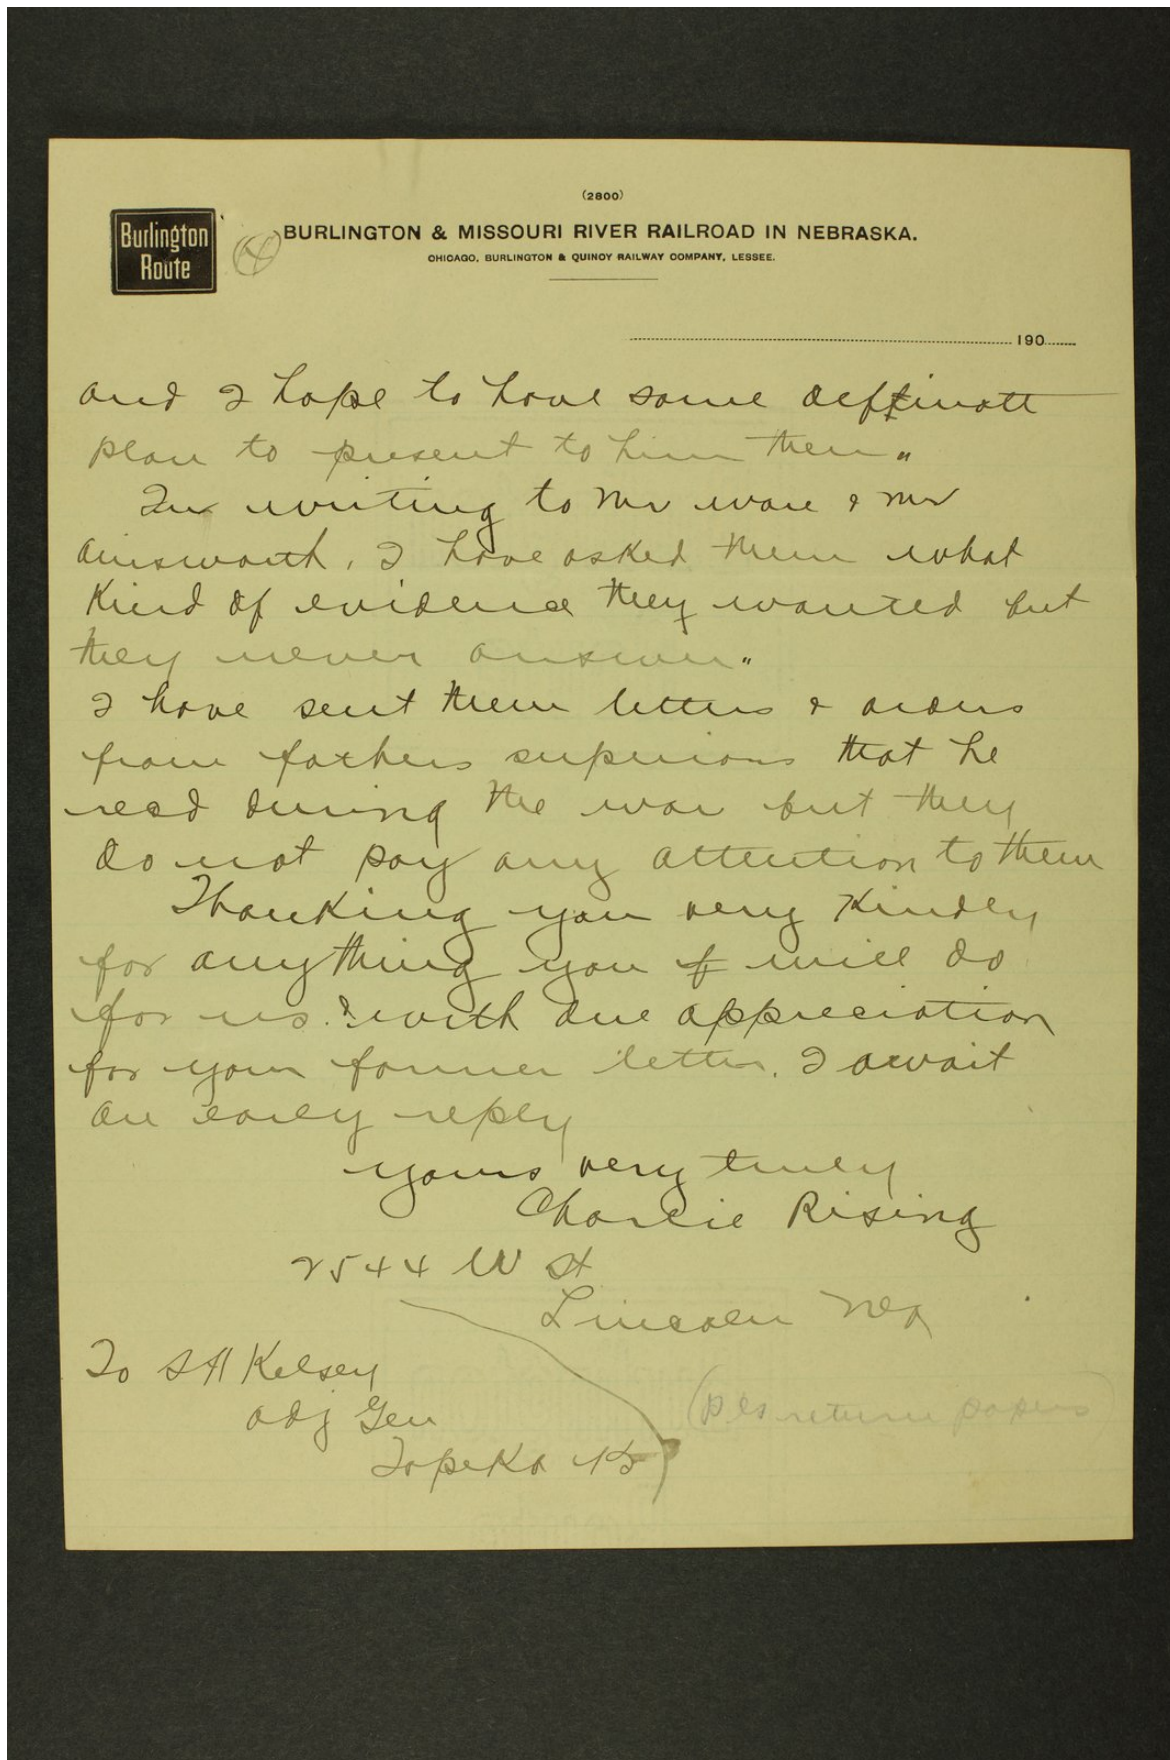 (2800)
Burlington
Route
4
BURLINGTON & MISSOURI RIVER RAILROAD IN NEBRASKA.
CHICAGO, BURLINGTON & QUINCY RAILWAY COMPANY, LESSEE.
190
and I hope to have some deffinate
plan to present to him then "
In writing to Mr Ware & Mr
Ainsworth, I have asked them what
Kind of evidence they wanted but
they never answer "
I have sent them letters & orders
from fathers superiors that he
recd during the war but they
do not pay any attention to them
Thanking you very Kindly
for anything you will do
for us. & with due appreciation
for your former letter. I await
an early reply
yours very truly
Charlie Rising
2544 W St
Lincoln Neb
To S H Kelsey
Adj Gen
Topeka Ks
(pls return papers)